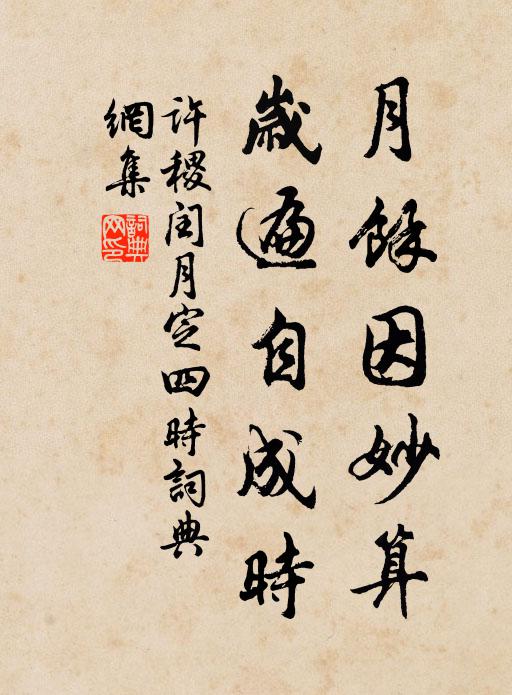 月餘因妙算
歲遍自成時
許稷閏月定四時詞典
網集
詞典
网印